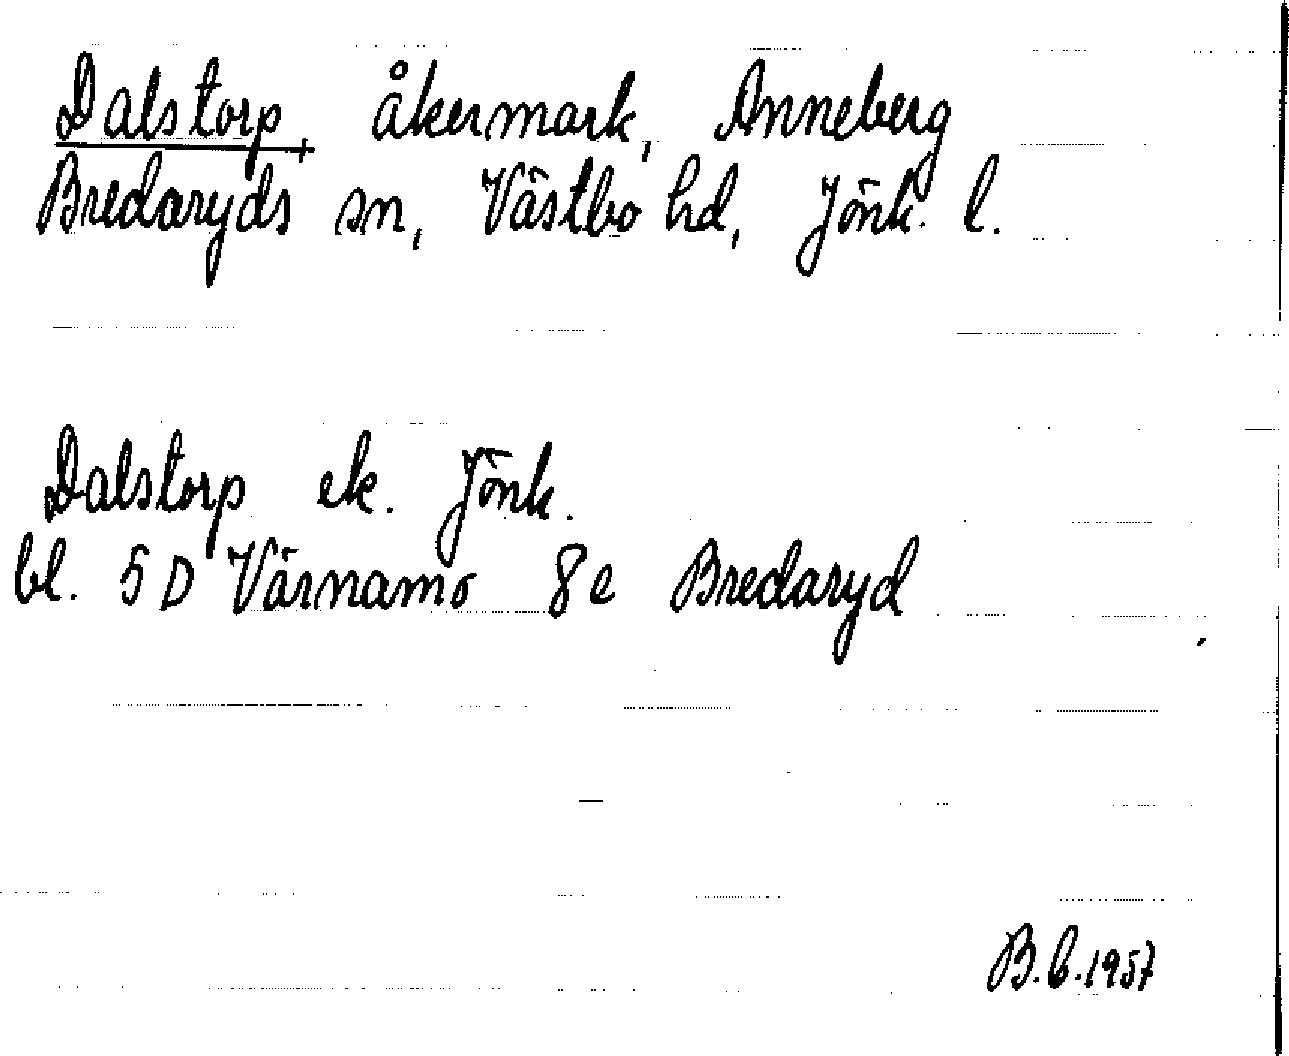 Dalstorp, åkermark, Anneberg
Bredaryds sn, Västbo hd, Jönk. l.
Dalstorp ek. Jönk.
bl. 5 D Värnamo 8 e Bredaryd
B.b. 1957